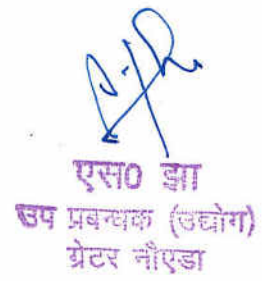 एस0 झा
उप प्रबन्धक (उद्योग)
ग्रेटर नौएडा